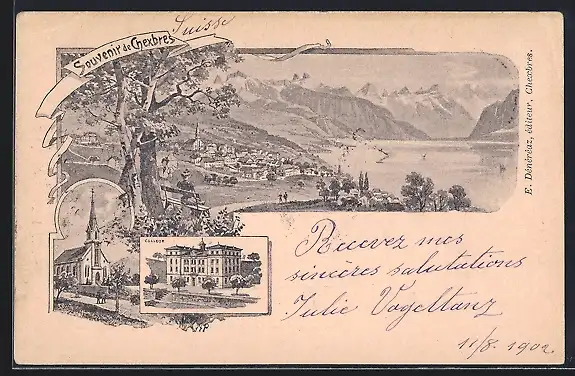 Suisse
Souvenir de Chexbres
E. Dénéréaz, éditeur, Chexbres.
COLLEGE
Recevez mes
sincères salutations
Julie Vogeltanz
11/8. 1902